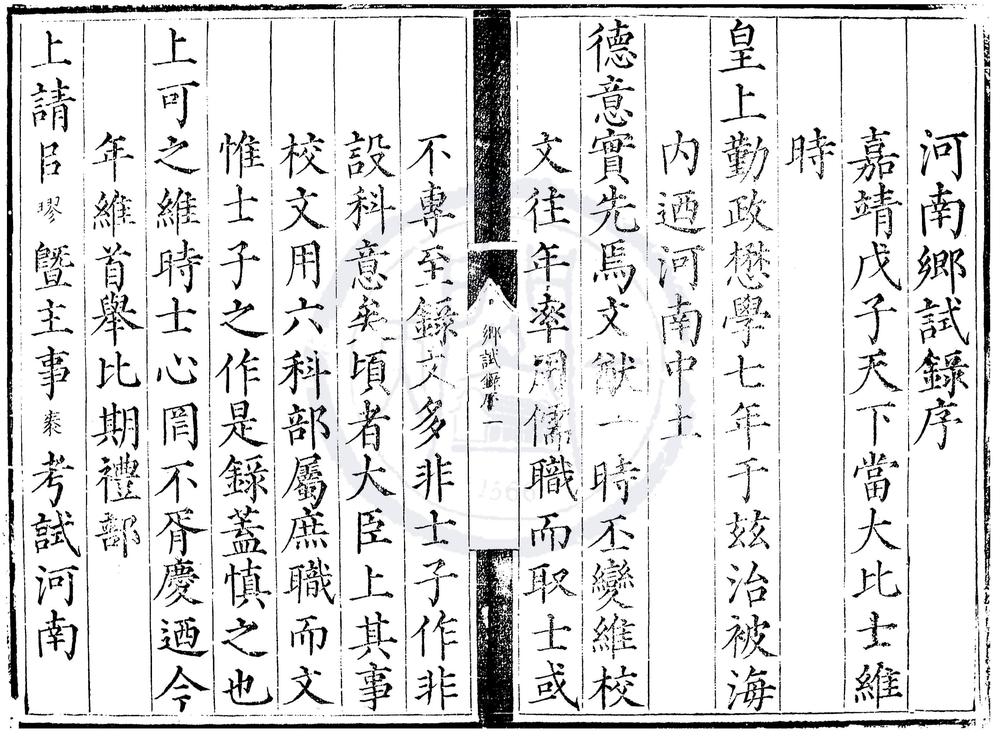 河南鄉試錄序
嘉靖戊子天下當大比士維
時
皇上勤政懋學七年于玆治被海
内迺河南中土
德意實先焉文猷一時丕變維校
文往年率用儒職而取士或
鄉試錄序一
不專至錄文多非士子作非
設科意矣頃者大臣上其事
校文用六科部屬庶職而文
惟士子之作是錄蓋慎之也
上可之維時士心罔不胥慶迺今
年維首舉比期禮部
上請呂璆暨主事桊考試河南
1566